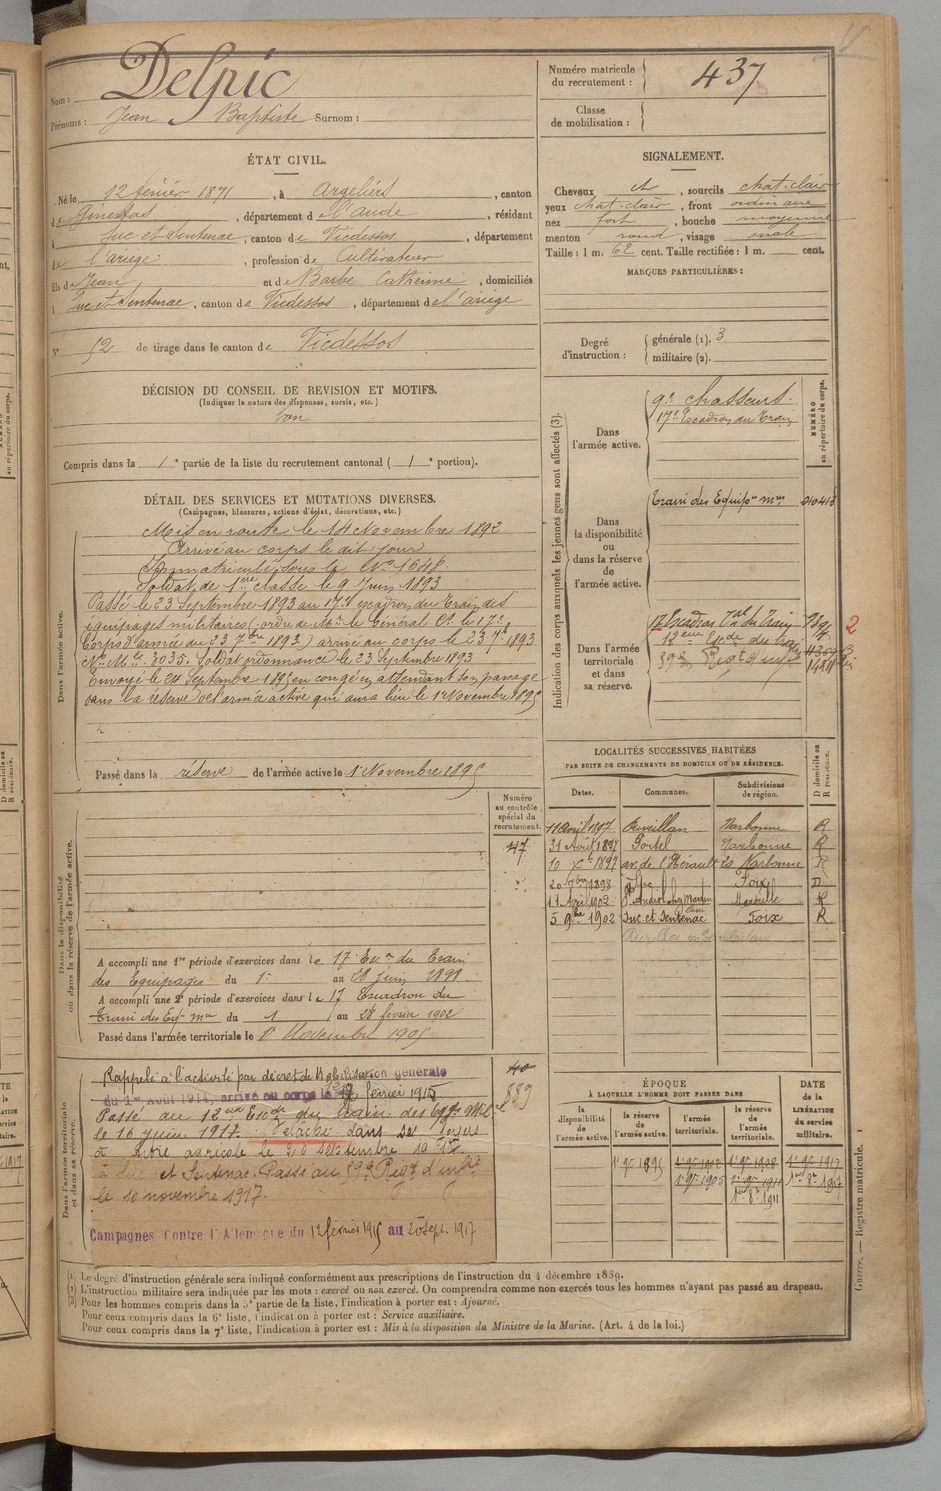 Nom : Delpic
Prénoms : Jean Baptiste Surnom :
Numéro matricule du recrutement : 437
Classe de mobilisation :
ÉTAT CIVIL.
Né le 12 février 1871, à Argeliers, canton
de Ginestas, département de l'aude, résidant
à Suc et Sentenac, canton de Vicdessos, département
de l'ariège, profession de Cultivateur
fils de Jean et de Barbe Catherine, domiciliés
à Suc et Sentenac, canton de Vicdessos, département de l'ariège
N° 52 de tirage dans le canton de Vicdessos
DÉCISION DU CONSEIL DE REVISION ET MOTIFS.
(Indiquer la nature des dispenses, sursis, etc.)
bon
Compris dans la 1e partie de la liste du recrutement cantonal (1e portion).
DÉTAIL DES SERVICES ET MUTATIONS DIVERSES.
(Campagnes, blessures, actions d'éclat, décorations, etc.)
Dans l'armée active.
Mis en route le 14 Novembre 1892
Arrivé au corps le dit jour
Immatriculé sous le No 1648
Soldat de 1ère classe le 9 Juin 1893
Passé le 23 Septembre 1893 au 17e escadron du Train des
équipages militaires (ordre de Mr le Général Ct le 17e
Corps d'armée du 23 7bre 1893.) arrivé au corps le 23 7bre 1893
No Mle 3035. Soldat ordonnance le 23 Septembre 1893
Envoyé le 24 Septembre 1895 en congé en attendant son passage
dans la réserve de l'armée active qui aura lieu le 1er Novembre 1895
Passé dans la réserve de l'armée active le 1er Novembre 1895
Numéro au contrôle spécial du recrutement.
47
Dans la disponibilité ou dans la réserve de l'armée active.
A accompli une 1re période d'exercices dans le 17e Eson du Train
des Equipages du 1er au 28 Juin 1898.
A accompli une 2e période d'exercices dans le 17 Escadron du
Train des Eq. mres du 1 au 28 février 1902
Passé dans l'armée territoriale le 1er Novembre 1905
Dans l'armée territoriale et dans sa réserve.
Rappelé à l'activité par décret de Mobilisation générale
du 1er Août 1914, arrivé au corps le 12 février 1915
Passé au 12eme Escon du train des Eqges Mres
le 16 juin 1917. Détaché dans ses foyers
à titre agricole le 20 septembre 1917
et Sentenac. Passé au 59e Regt d'infie
le 10 novembre 1917.
Campagnes Contre l'Allemagne du 12 février 1915 au 20 sept. 1917
40
889
SIGNALEMENT.
Cheveux et, sourcils chat-clair
yeux chat-clair, front ordinaire
nez fort, bouche moyenne
menton rond, visage ovale
Taille : 1 m. 62 cent. Taille rectifiée : 1 m. cent.
MARQUES PARTICULIÈRES :
Degré d'instruction : générale (1). 3
militaire (2).
Indication des corps auxquels les jeunes gens sont affectés (3).
NUMÉRO au répertoire du corps.
Dans l'armée active.
9e Chasseurs.
17e Escadron du Train
Dans la disponibilité ou dans la réserve de l'armée active.
Train des Equipes mres
Dans l'armée territoriale et dans sa réserve.
17 Escadron Tal du Train
12eme Escon du train
59e Regt d'infie
2
LOCALITÉS SUCCESSIVES HABITÉES
PAR SUITE DE CHANGEMENTS DE DOMICILE OU DE RÉSIDENCE.
Dates. Communes. Subdivisions de région. D domicile ou R résidence.
11 Avril 1897 Cuvillan Narbonne R
31 Août 1897 Portel Narbonne R
10 Xbre 1897 av. de l'Hérault 20 Narbonne R
20 7bre 1898 Suc Foix D
11 Avril 1902 Marseille R
5 9bre 1902 Suc et Sentenac Foix R
ÉPOQUE
À LAQUELLE L'HOMME DOIT PASSER DANS
la disponibilité de l'armée active. la réserve de l'armée active. l'armée territoriale. la réserve de l'armée territoriale.
DATE de la LIBÉRATION du service militaire.
1er 9bre 1895 1er 9bre 1902 1er 9bre 1908 1er 9bre 1917
1er 9bre 1905 1er 9bre 1911 1er 8bre 1917
1er 8bre 1911
(1) Le degré d'instruction générale sera indiqué conformément aux prescriptions de l'instruction du 4 décembre 1889.
(2) L'instruction militaire sera indiquée par les mots : exercé ou non exercé. On comprendra comme non exercés tous les hommes n'ayant pas passé au drapeau.
(3) Pour les hommes compris dans la 5e partie de la liste, l'indication à porter est : Ajourné.
Pour ceux compris dans la 6e liste, l'indication à porter est : Service auxiliaire.
Pour ceux compris dans la 7e liste, l'indication à porter est : Mis à la disposition du Ministre de la Marine. (Art. 4 de la loi.)
Guerre. — Registre matricule. 1